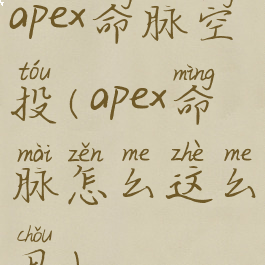 apex命脉空
tóu mìng
投(apex命
mài zěn me zhè me
脉怎么这么
chǒu